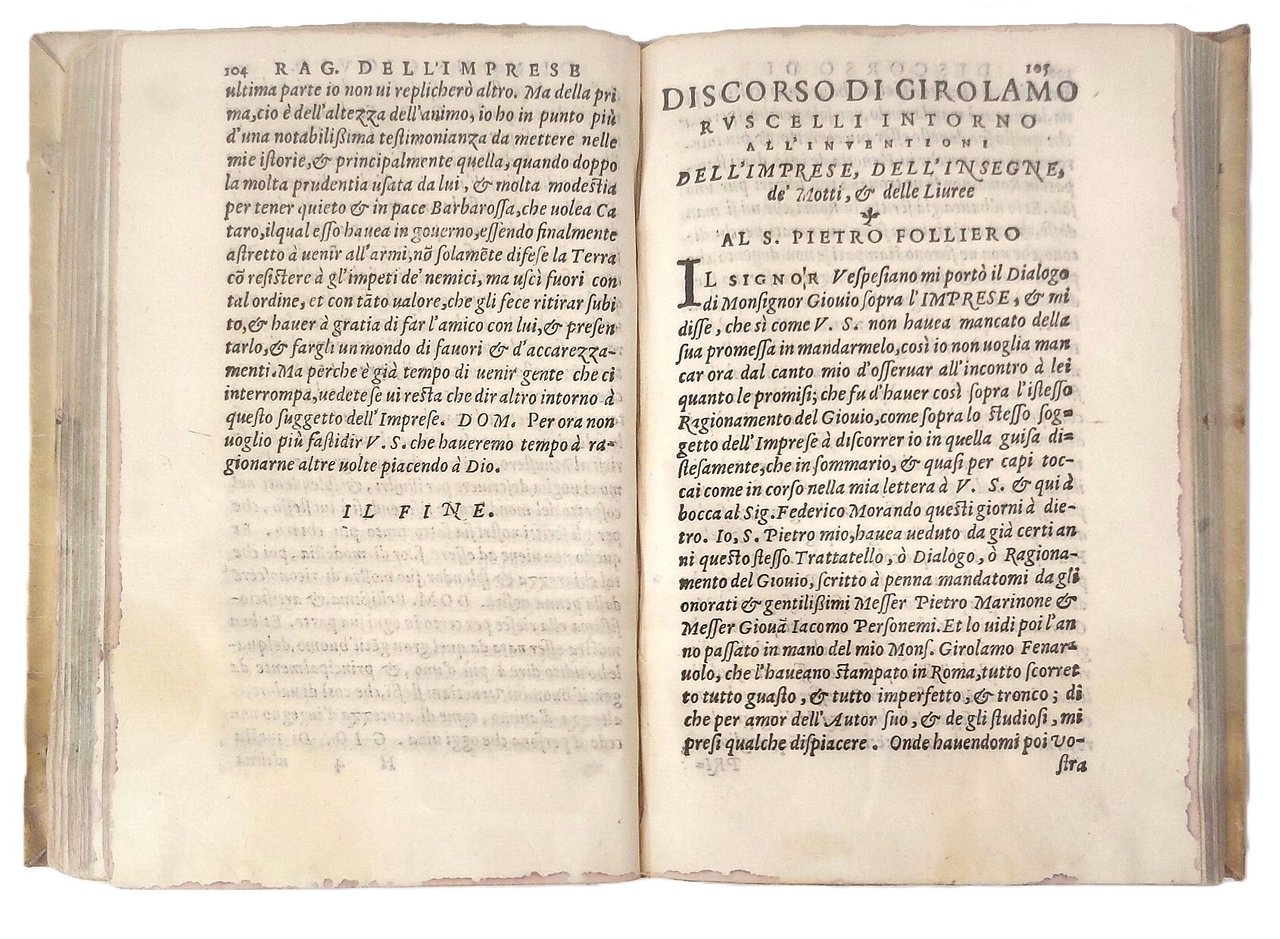 104 RAG. DELL'IMPRESE
ultima parte io non ui replicherò altro. Ma della pri
ma, cio è dell'altezza dell'animo, io ho in punto più
d'una notabilißima testimonianza da mettere nelle
mie istorie, & principalmente quella, quando doppo
la molta prudentia usata da lui, & molta modestia
per tener quieto & in pace Barbarossa, che uolea Ca
taro, ilqual esso hauea in gouerno, essendo finalmente
astretto à uenir all'armi, nõ solamẽte difese la Terra
cõ resistere à gl'impeti de' nemici, ma uscì fuori con
tal ordine, et con tãto ualore, che gli fece ritirar subi
to, & hauer à gratia di far l'amico con lui, & presen
tarlo, & fargli un mondo di fauori & d'accarezza-
menti. Ma perche è già tempo di uenir gente che ci
interrompa, uedete se ui resta che dir altro intorno à
questo suggetto dell'Imprese. DOM. Per ora non
uoglio più fastidir V. S. che haueremo tempo à ra-
gionarne altre uolte piacendo à Dio.
IL FINE.
105
DISCORSO DI GIROLAMO
RVSCELLI INTORNO
ALL'INVENTIONI
DELL'IMPRESE, DELL'INSEGNE,
de' Motti, & delle Liuree
AL S. PIETRO FOLLIERO
IL SIGNOR Vespesiano mi portò il Dialogo
di Monsignor Giouio sopra l'IMPRESE, & mi
disse, che sì come V. S. non hauea mancato della
sua promessa in mandarmelo, così io non uoglia man
car ora dal canto mio d'osseruar all'incontro à lei
quanto le promisi; che fu d'hauer così sopra l'istesso
Ragionamento del Giouio, come sopra lo stesso sog-
getto dell'Imprese à discorrer io in quella guisa di-
stesamente, che in sommario, & quasi per capi toc-
cai come in corso nella mia lettera à V. S. & qui à
bocca al Sig. Federico Morando questi giorni à die-
tro. Io, S. Pietro mio, hauea ueduto da già certi an
ni questo stesso Trattatello, ò Dialogo, ò Ragiona-
mento del Giouio, scritto à penna mandatomi da gli
onorati & gentilißimi Messer Pietro Marinone &
Messer Giouã Iacomo Personemi. Et lo uidi poi l'an
no passato in mano del mio Mons. Girolamo Fenar-
uolo, che l'haueano stampato in Roma, tutto scorret
to tutto guasto, & tutto imperfetto, & tronco; di
che per amor dell'Autor suo, & de gli studiosi, mi
presi qualche dispiacere. Onde hauendomi poi Vo-
stra